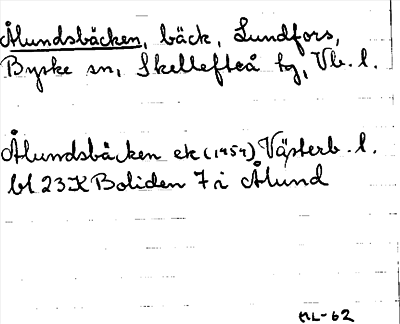 Ålundsbäcken, bäck, Lundfors,
Byske sn, Skellefteå tg, Vb. l.
Ålundsbäcken ek (1959) Västerb. l.
bl 23K Boliden 7i Ålund
ML-62